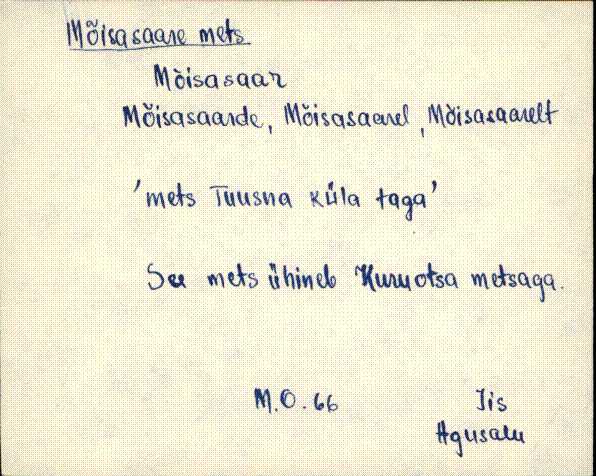 Mõisasaare mets
Mõisasaar
Mõisasaarde, Mõisasaarel, Mõisasaarelt
'mets Tuusna küla taga'
See mets ühineb Kuruotsa metsaga.
M.O. 66 Iis
Agusalu